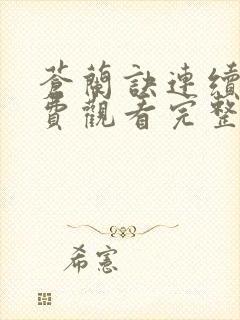 蒼蘭訣連續
費觀看完整
希憲